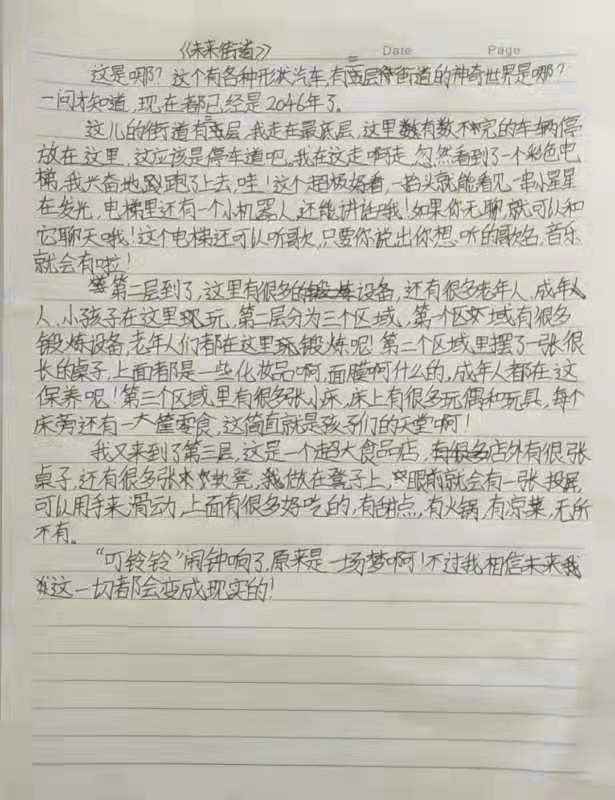 《未来街道》
Date Page
这是哪？这个有各种形状汽车，有三层街道的神奇世界是哪？
一问才知道，现在都已经是2046年了。
这儿的街道有三层，我走在最底层，这里有数不完的车辆停
放在这里，这应该是停车道吧。我在这走啊走，忽然看到了一个彩色电
梯，我兴奋地跑了上去，哇！这个超极好看，一抬头就能看见一串小星星
在发光，电梯里还有一个小机器人，还能讲话哦！如果你无聊，就可以和
它聊天哦！这个电梯还可以听歌，只要你说出你想听的歌名，音乐
就会有啦！
第二层到了，这里有很多的锻炼设备，还有很多老年人，成年
人，小孩子在这里玩，第二层分为三个区域，第一个区域有很多
锻炼设备，老年人们都在这里锻炼呢！第二个区域里摆了一张很
长的桌子，上面都是一些化妆品啊，面膜啊什么的，成年人都在这
保养呢！第三个区域里有很多张小床，床上有很多玩偶和玩具，每个
床旁还有一大筐零食，这简直就是孩子们的天堂啊！
我又来到了第三层，这是一个超大食品店，店外有很张
桌子，还有很多张软凳，我做在凳子上，眼前就会有一张投屏，
可以用手来滑动，上面有很多好吃的，有甜点，有火锅，有凉菜，无所
不有。
“叮铃铃”闹钟响了，原来是一场梦啊！不过我相信未来
这一切都会变成现实的！